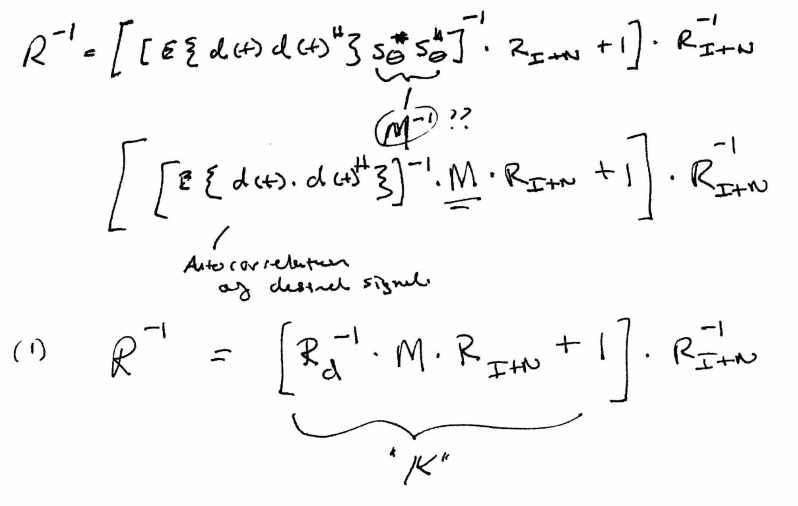 R^-1 = [ [ E{ d(t) d(t)^H } S_θ^* S_θ^H ]^-1 · R_I+N + 1 ] · R_I+N^-1
M^-1 ??
[ [ E{ d(t) · d(t)^H } ]^-1 · M · R_I+N + 1 ] · R_I+N^-1
Autocorrelation
of desired signal.
(1) R^-1 = [ R_d^-1 · M · R_I+N + 1 ] · R_I+N^-1
"K"